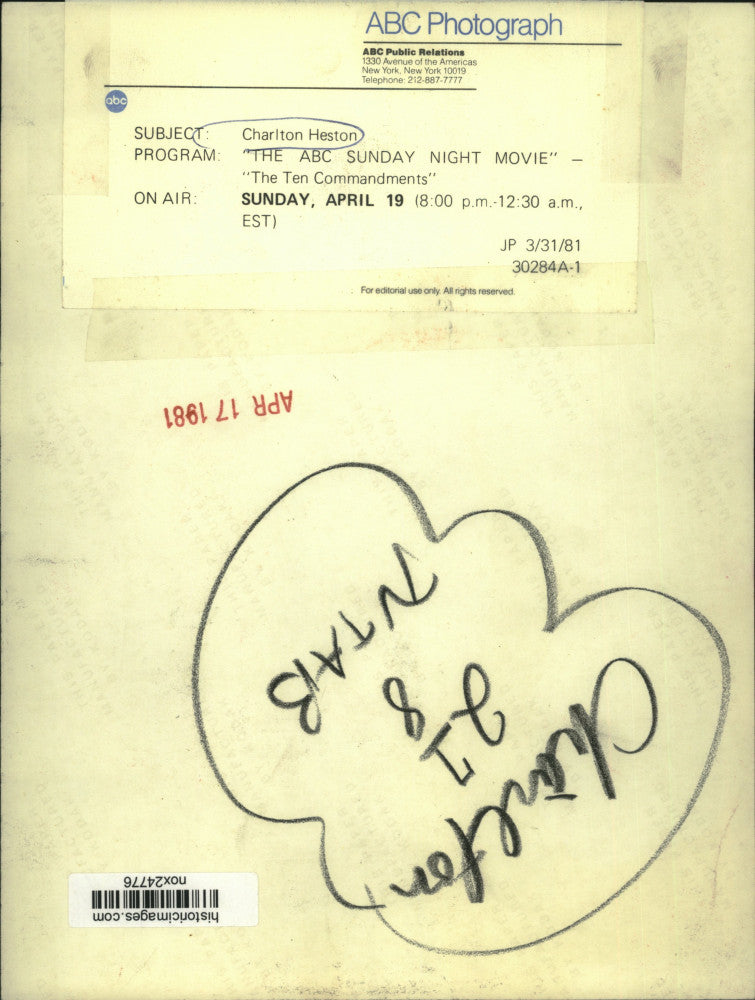 ABC Photograph
ABC Public Relations
1330 Avenue of the Americas
New York, New York 10019
Telephone: 212-887-7777
abc
SUBJECT: Charlton Heston
PROGRAM: "THE ABC SUNDAY NIGHT MOVIE" –
"The Ten Commandments"
ON AIR: SUNDAY, APRIL 19 (8:00 p.m.-12:30 a.m.,
EST)
JP 3/31/81
30284A-1
For editorial use only. All rights reserved.
APR 17 1981
TV TAB
Charlton
historicimages.com
nox24776